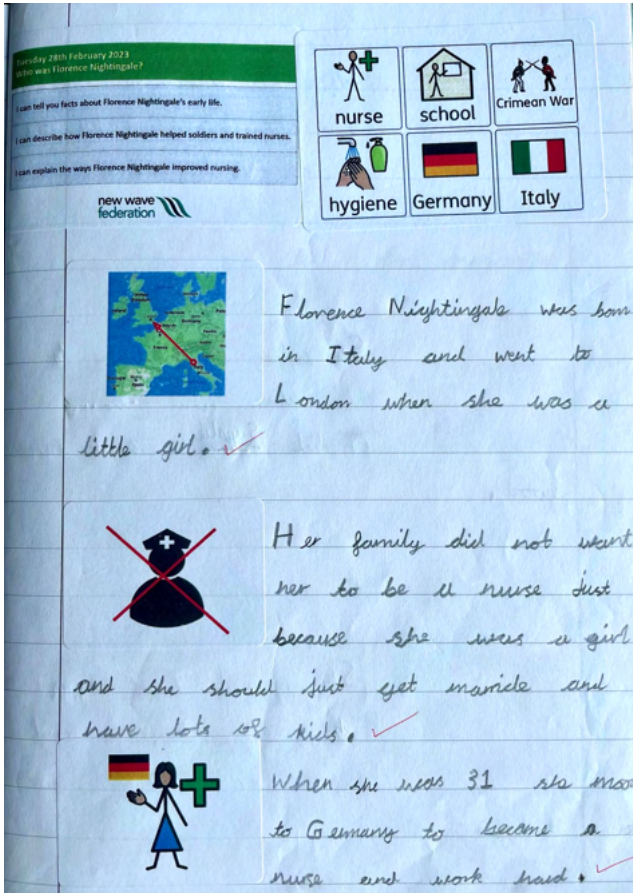 Tuesday 28th February 2023
Who was Florence Nightingale?
I can tell you facts about Florence Nightingale's early life.
I can describe how Florence Nightingale helped soldiers and trained nurses.
I can explain the ways Florence Nightingale improved nursing.
new wave
federation
nurse
school
Crimean War
hygiene
Germany
Italy
Florence Nightingale was born
in Italy and went to
London when she was a
little girl.
Her family did not want
her to be a nurse just
because she was a girl
and she should just get marride and
have lots of kids.
When she was 31 she
to Germany to become a
nurse and work hard.